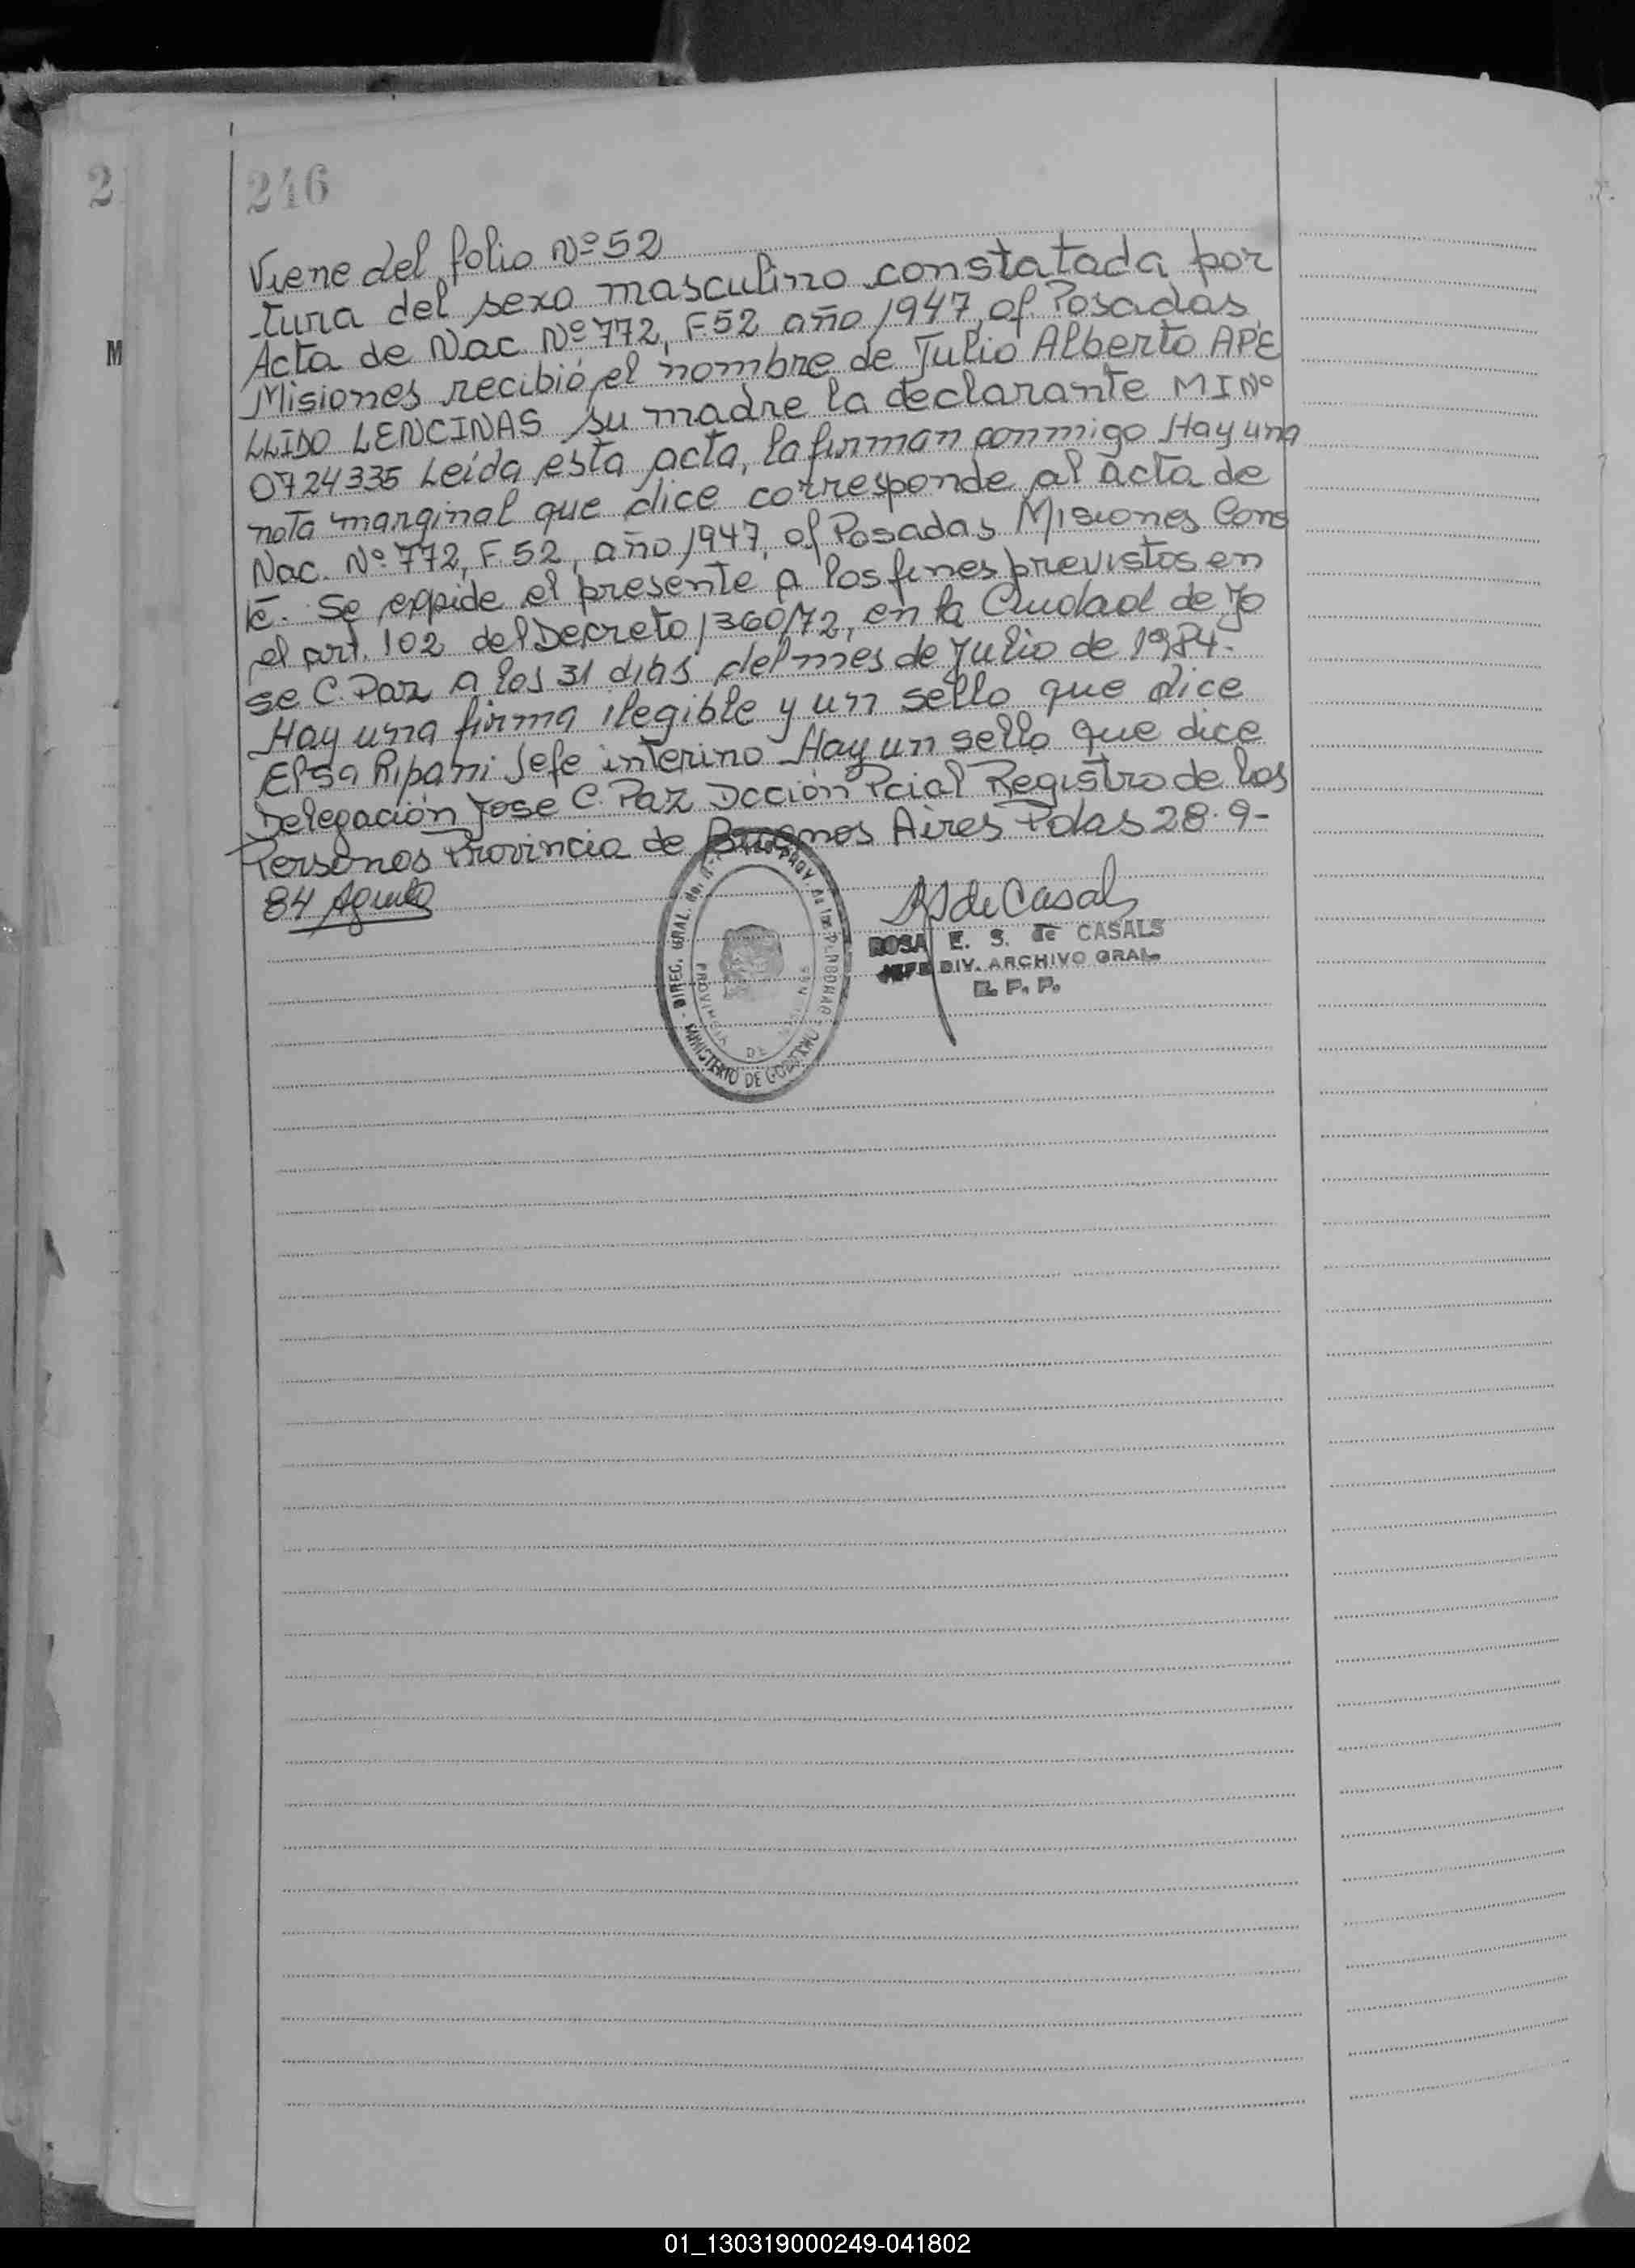 2
246
M
Viene del folio Nº 52
tura del sexo masculino constatada por
Acta de Nac. Nº 772, F.52 año 1947, of. Posadas
Misiones recibió el nombre de Julio Alberto APE
LLIDO LENCINAS su madre la declarante MI Nº
0724335 Leída esta acta, la firman conmigo Hay una
nota marginal que dice corresponde al acta de
Nac. Nº 772, F. 52, año 1947, of Posadas Misiones Cons
te. Se expide el presente a los fines previstos en
el art. 102 del Decreto 1360/72, en la Ciudad de Jo
se C. Paz a los 31 dias del mes de Julio de 1984.
Hay una firma ilegible y un sello que dice
Elsa Ripani Jefe interino Hay un sello que dice
Delegación Jose C. Paz Dcción Pcial Registro de las
Personas Provincia de Buenos Aires Pdas 28-9-
84
R S de Casals
ROSA E. S. de CASALS
JEFE DIV. ARCHIVO GRAL.
R. P. P.
DIREC. GRAL. de PROV. de las PERSONAS
PROVINCIA DE
MINISTERIO DE GOBIERNO
01_130319000249-041802